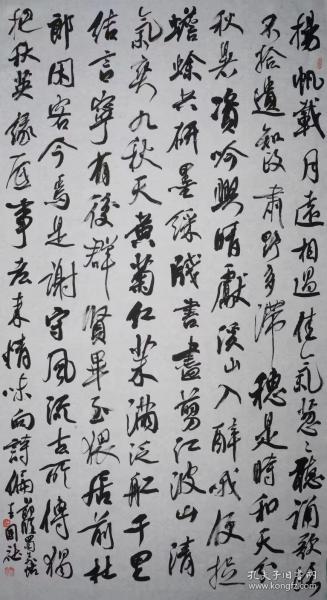 揚帆載月遠相過佳氣蔥々聽誦歌路
不拾遺知政肅野多滯穗是時和天分
秋暑資吟興晴獻溪山入醉哦便捉
蟾蜍共研墨綵牋書盡剪江波山清
氣爽九秋天黃菊紅茱滿泛船千里
結言寧有後群賢畢至猥居前杜
郎閑客今焉是謝守風流古所傳獨
把秋英緣底事老來情味向詩偏
孔夫子旧书网